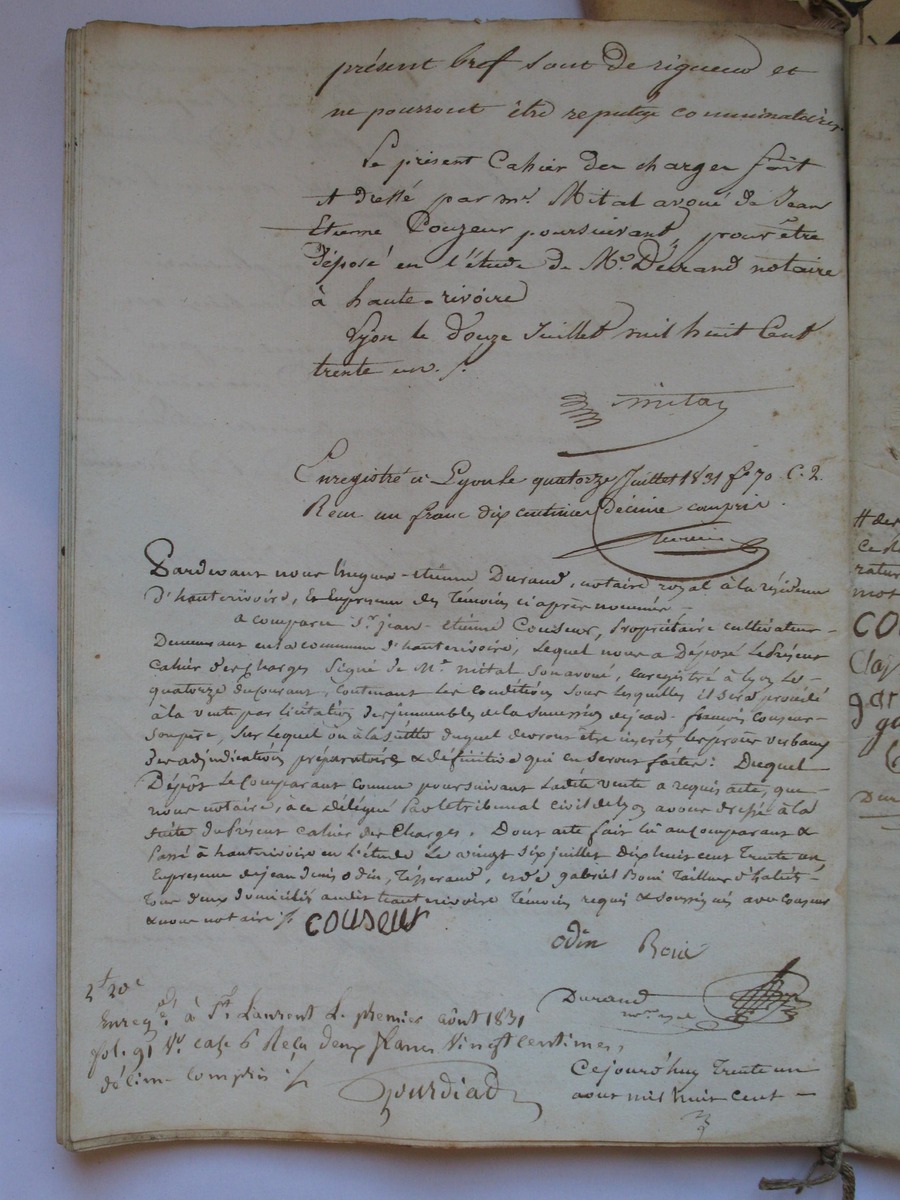 présent bref sont de rigueur et
ne pourront être reputés comminatoires.
Le présent Cahier des charges fait
et dressé par mr. Mital avoué de Jean
Etienne Couzeur poursuivant, pour être
déposé en l'étude de Me. Durand notaire
à haute-rivoire
Lyon le douze Juillet mil huit Cent
trente un ./.
mital
Enregistré à Lyon le quatorze Juillet 1831 fo 70 C. 2.
Recu un franc dix centimes décime compris
Pardevant nous hugues-étienne Durand, notaire royal à la résidence
d'hauterivoire, En présence des Témoins ci après nommés -
a comparu Sr. jean-etienne Couseur, Propriétaire cultivateur-
Demeurant en la commune d'hauterivoire, Lequel nous a Déposé le Présent
Cahier des Charges Signé de Me. mital son avoué, Enregistré à Lyon le-
quatorze du courant, Contenant les Conditions sous lesquelles il sera procédé
à la vente par licitation des immeubles de la succession de jean-françois Couseur-
son père, sur lequel ou à la suitte duquel devront être inscrits les procès verbaux
des adjudications préparatoire & définitive qui en seront faites : Duquel
Dépôt le Comparant comme poursuivant Ladite vente a requis acte, que-
nous notaire, à ce délégué Par le tribunal civil de Lyon avons dressé à la
suite du Présent cahier des Charges. Dont acte fait lû au Comparant &
Passé à hauterivoire en l'étude Le vingt six juillet dix huit cent Trente un,
En présence de jean denis odin, Tisserand, et de gabriel Boni Tailleur d'habits-
Tous deux domiciliés audit hauterivoire Témoins requis & soussignés avec Couseur
& nous notaire ./. COUSEUR
odin Boni
2f 20c
Durand
nore. royal
Enregé. à St. Laurent Le premier août 1831
fol. 91 Vo. case 6 Reçu deux francs vingt centimes,
décime compris ./.
Gourdiat
Cejourd'huy Trente un
aout mil huit cent -
# des
ce d
ratur
mot
COU
Clap
gar
Dur